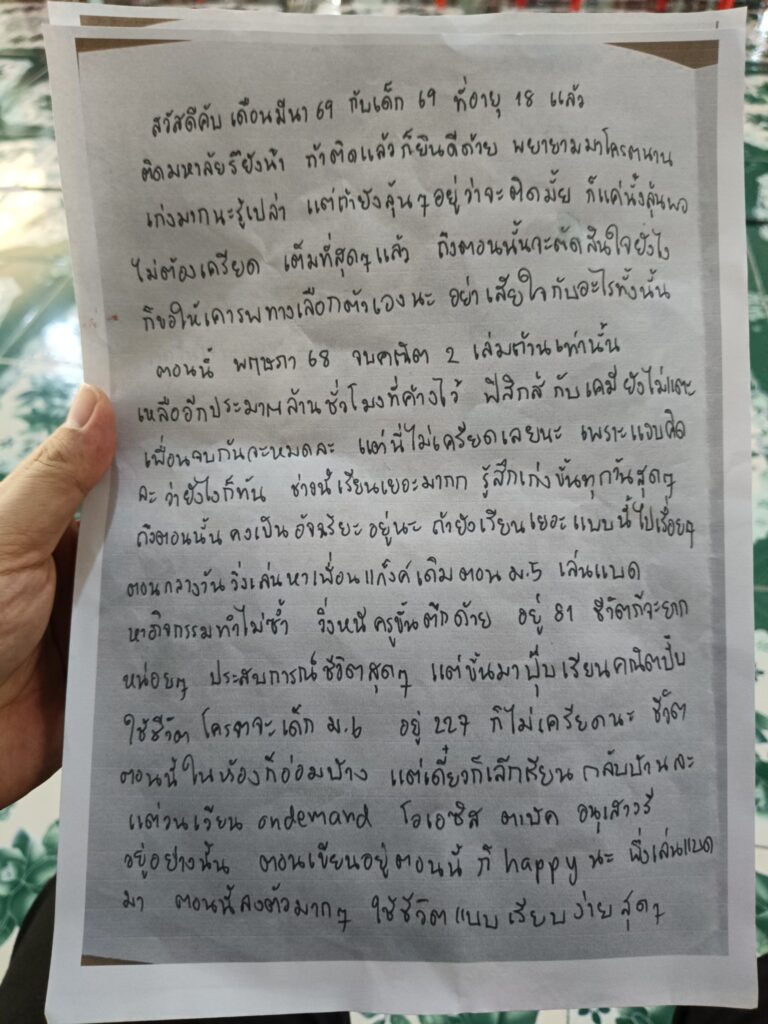 สวัสดีคับ เดือนมีนา 69 กับเด็ก 69 ที่อายุ 18 แล้ว
ติดมหาลัยรึยังน้า ถ้าติดแล้วก็ยินดีด้วย พยายามมาโครตนาน
เก่งมากนะรู้เปล่า แต่ถ้ายังลุ้นๆอยู่ว่าจะติดมั้ย ก็แค่นั่งลุ้นพอ
ไม่ต้องเครียด เต็มที่สุดๆแล้ว ถึงตอนนั้นจะตัดสินใจยังไง
ก็ขอให้เคารพทางเลือกตัวเองนะ อย่าเสียใจกับอะไรทั้งนั้น
ตอนนี้ พฤษภา 68 จบคณิต 2 เล่มถ้วนเท่านั้น
เหลืออีกประมาฯล้านชั่วโมงที่ค้างไว้ ฟิสิกส์ กับ เคมี ยังไม่แตะ
เพื่อนจบกันจะหมดละ แต่นี่ไม่เครียดเลยนะ เพราะแอบคิด
ละ ว่ายังไงก็ทัน ช่วงนี้เรียนเยอะมากก รู้สึกเก่งขึ้นทุกวันสุดๆ
ถึงตอนนั้น คงเป็น อัจฉริยะ อยู่นะ ถ้ายังเรียนเยอะแบบนี้ไปเรื่อยๆ
ตอนกลางวัน วิ่งเล่นหาเพื่อนแก๊งค์เดิมตอน ม.5 เล่นแบด
หากิจกรรมทำไม่ซ้ำ วิ่งหนีครูขึ้นตึกด้วย อยู่ 81 ชีวิตก็จะยาก
หน่อยๆ ประสบการณ์ชีวิตสุดๆ แต่ขึ้นมาปุ๊บเรียนคณิตปั๊บ
ใช้ชีวิต โครตจะเด็ก ม.6 อยู่ 227 ก็ไม่เครียดนะ ชีวิต
ตอนนี้ในห้องก็อ่อมบ้าง แต่เดี๋ยวก็เลิกเรียน กลับบ้านละ
แต่วนเวียน ondemand โอเอซิส อนุเสาวรี
อยู่อย่างนั้น ตอนเขียนอยู่ตอนนี้ ก็ happy นะ พึ่งเล่นแบด
มา ตอนนี้ลงตัวมากๆ ใช้ชีวิตแบบเรียบง่ายสุดๆ